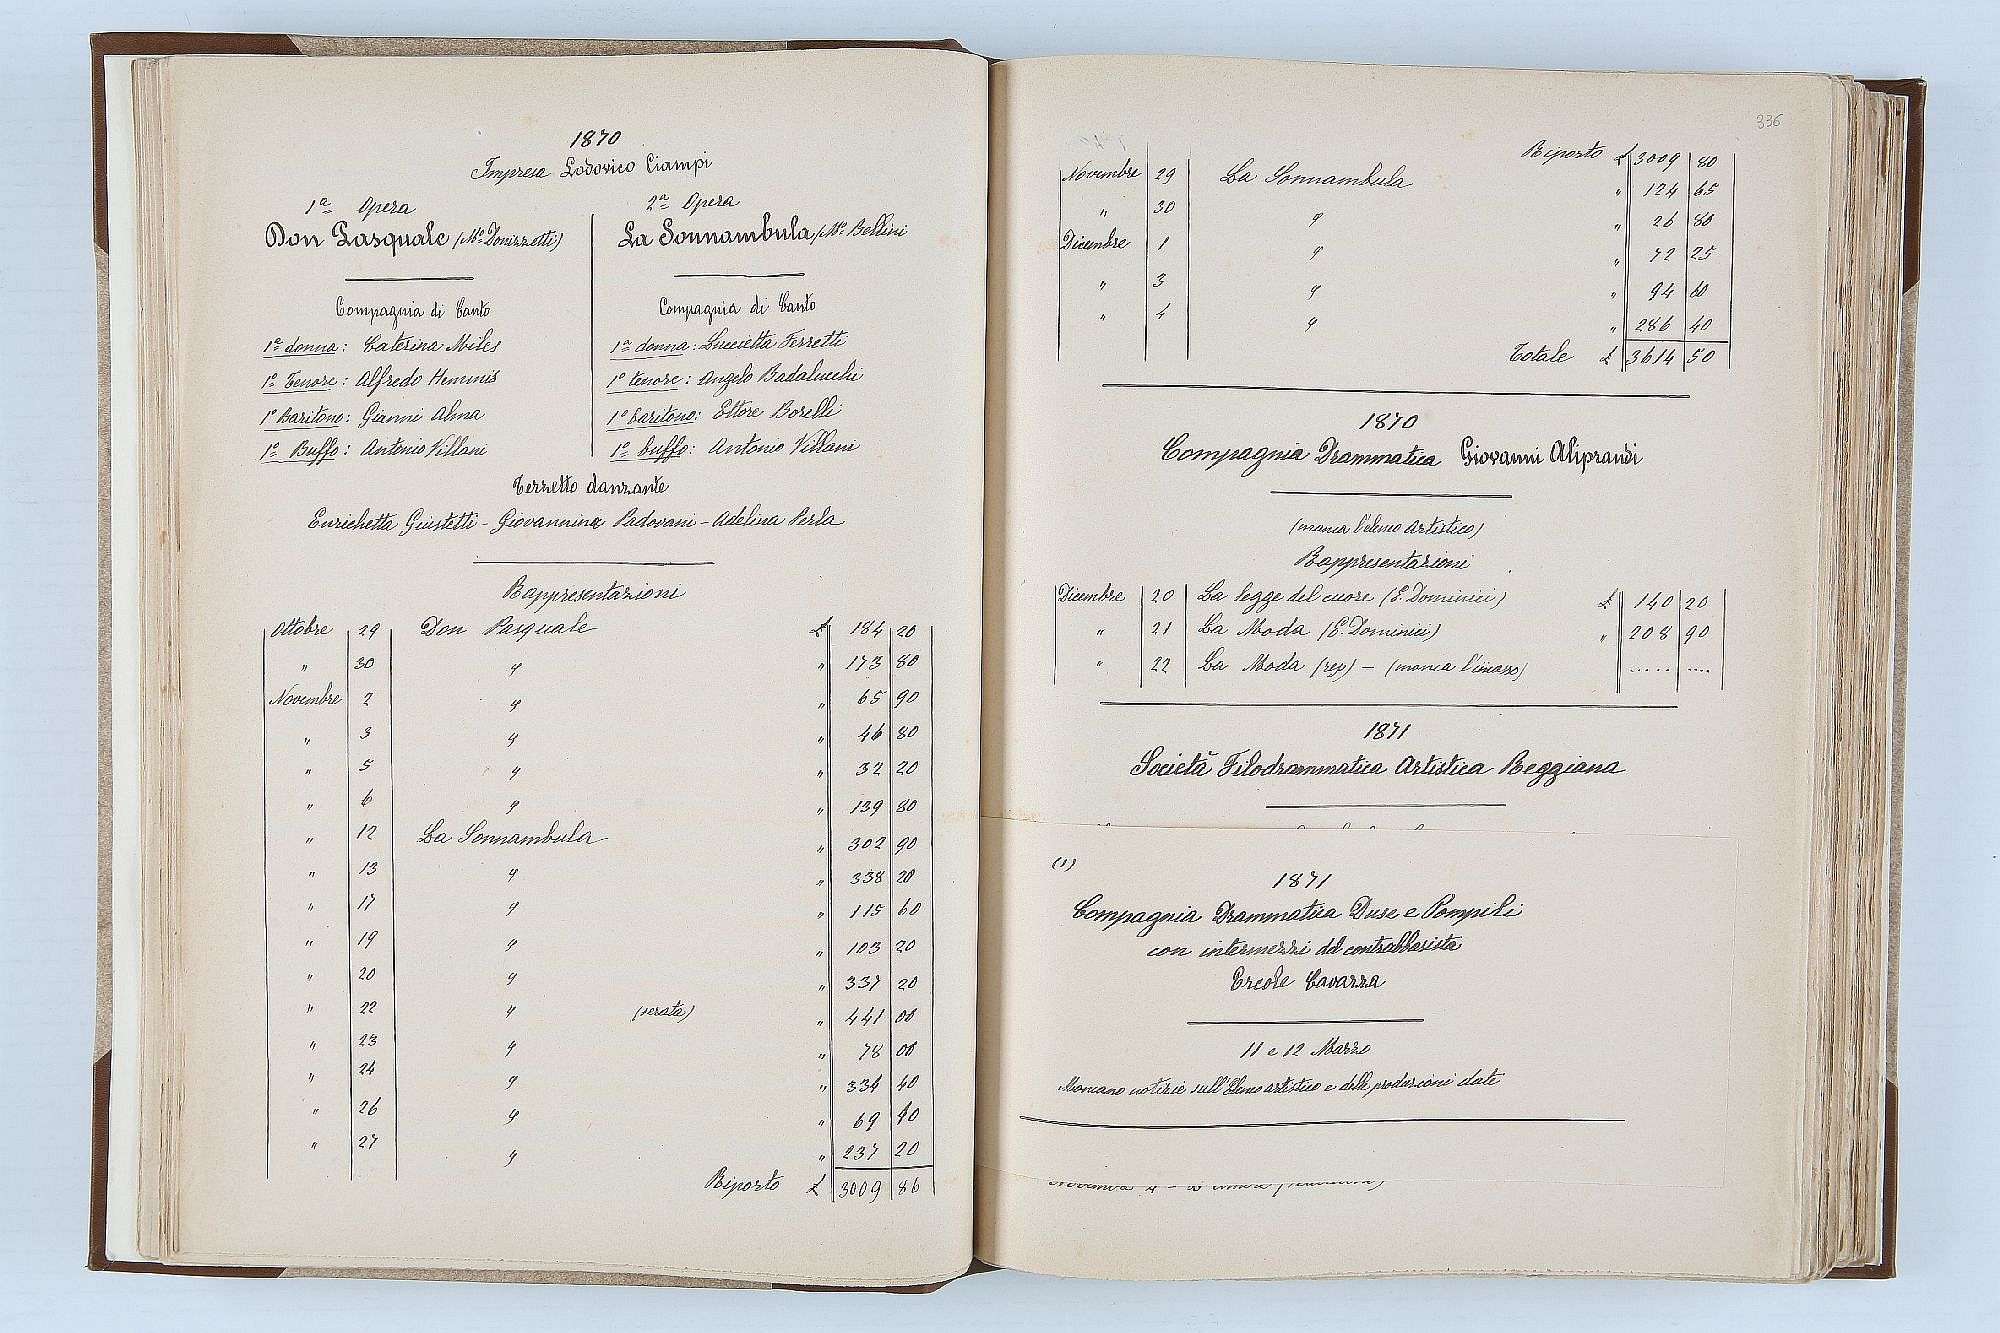 1870
Impresa Lodovico Ciampi
1ª Opera
Don Pasquale (Mº Donizzetti)
Compagnia di Canto
1ª donna: Caterina Miles
1º Tenore: Alfredo Hemmis
1º Baritono: Gianni Alma
1º Buffo: Antonio Villani
2ª Opera
La Sonnambula (Mº Bellini
Compagnia di Canto
1ª donna: Luccietta Ferretti
1º tenore: Angelo Badalucchi
1º baritono: Ettore Borelli
1º buffo: Antonio Villani
Terzetto danzante
Enrichetta Giustetti - Giovannina Padovani - Adelina Perla
Rappresentazioni
Ottobre 29 Don Pasquale £ 184 20
" 30 " " 173 80
Novembre 2 " " 65 90
" 3 " " 46 80
" 5 " " 32 20
" 6 " " 139 80
" 12 La Sonnambula " 302 90
" 13 " " 338 20
" 17 " " 115 60
" 19 " " 103 20
" 20 " " 337 20
" 22 " (serata) " 441 00
" 23 " " 78 00
" 24 " " 334 40
" 26 " " 69 40
" 27 " " 237 20
Riporto £ 3009 80
336
Riporto £ 3009 80
Novembre 29 La Sonnambula " 124 65
" 30 " " 26 80
Dicembre 1 " " 72 25
" 3 " " 94 60
" 4 " " 286 40
Totale £ 3614 50
1870
Compagnia Drammatica Giovanni Aliprandi
(manca l'elenco Artistico)
Rappresentazioni
Dicembre 20 La legge del cuore (E. Dominici) £ 140 20
" 21 La Moda (E. Dominici) " 208 90
" 22 La Moda (rep) - (manca l'incasso) ..... ....
1871
Società Filodrammatica Artistica Reggiana
(1)
1871
Compagnia Drammatica Duse e Pompili
con intermezzi del contrabbasista
Ercole Cavazza
11 e 12 Marzo
Mancano notizie sull'Elenco artistico e delle produzioni date